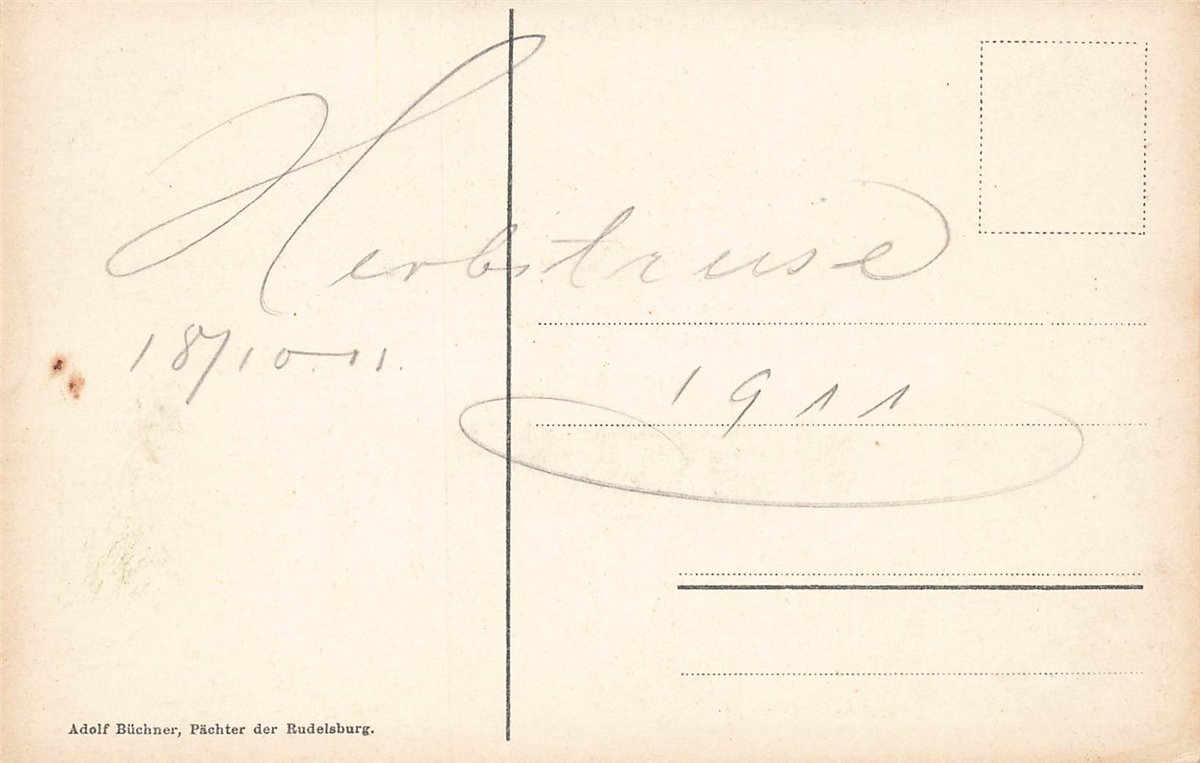 Herbstreise
18/10 - 11.
1911
Adolf Büchner, Pächter der Rudelsburg.